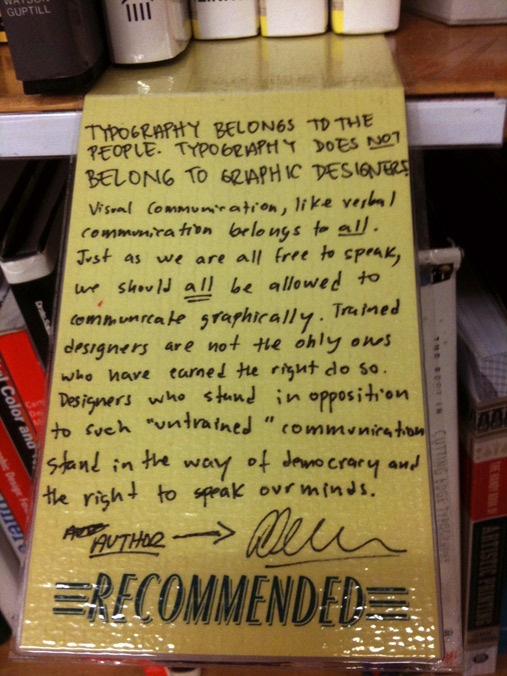 WATSON
GUPTILL
TYPOGRAPHY BELONGS TO THE
PEOPLE. TYPOGRAPHY DOES NOT
BELONG TO GRAPHIC DESIGNERS
Visual communication, like verbal
communication belongs to all.
Just as we are all free to speak,
we should all be allowed to
communicate graphically. Trained
designers are not the only ones
who have earned the right do so.
Designers who stand in opposition
to such "untrained" communication
stand in the way of democracy and
the right to speak our minds.
AUTHOR
RECOMMENDED
Color and
CUTTING EDGE